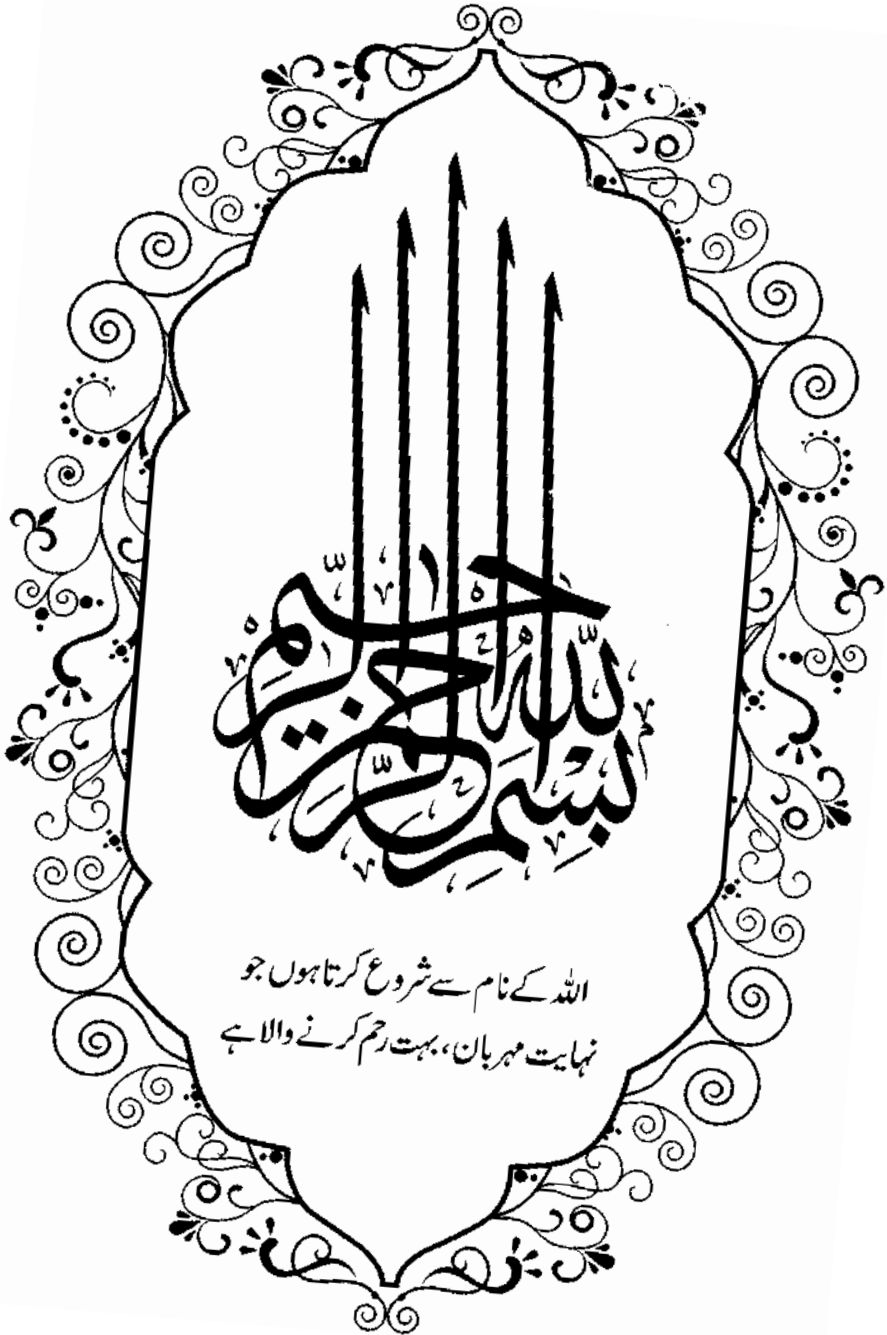 بسم الله الرحمن الرحيم
اللہ کے نام سے شروع کرتا ہوں جو
نہایت مہربان، بہت رحم کرنے والا ہے